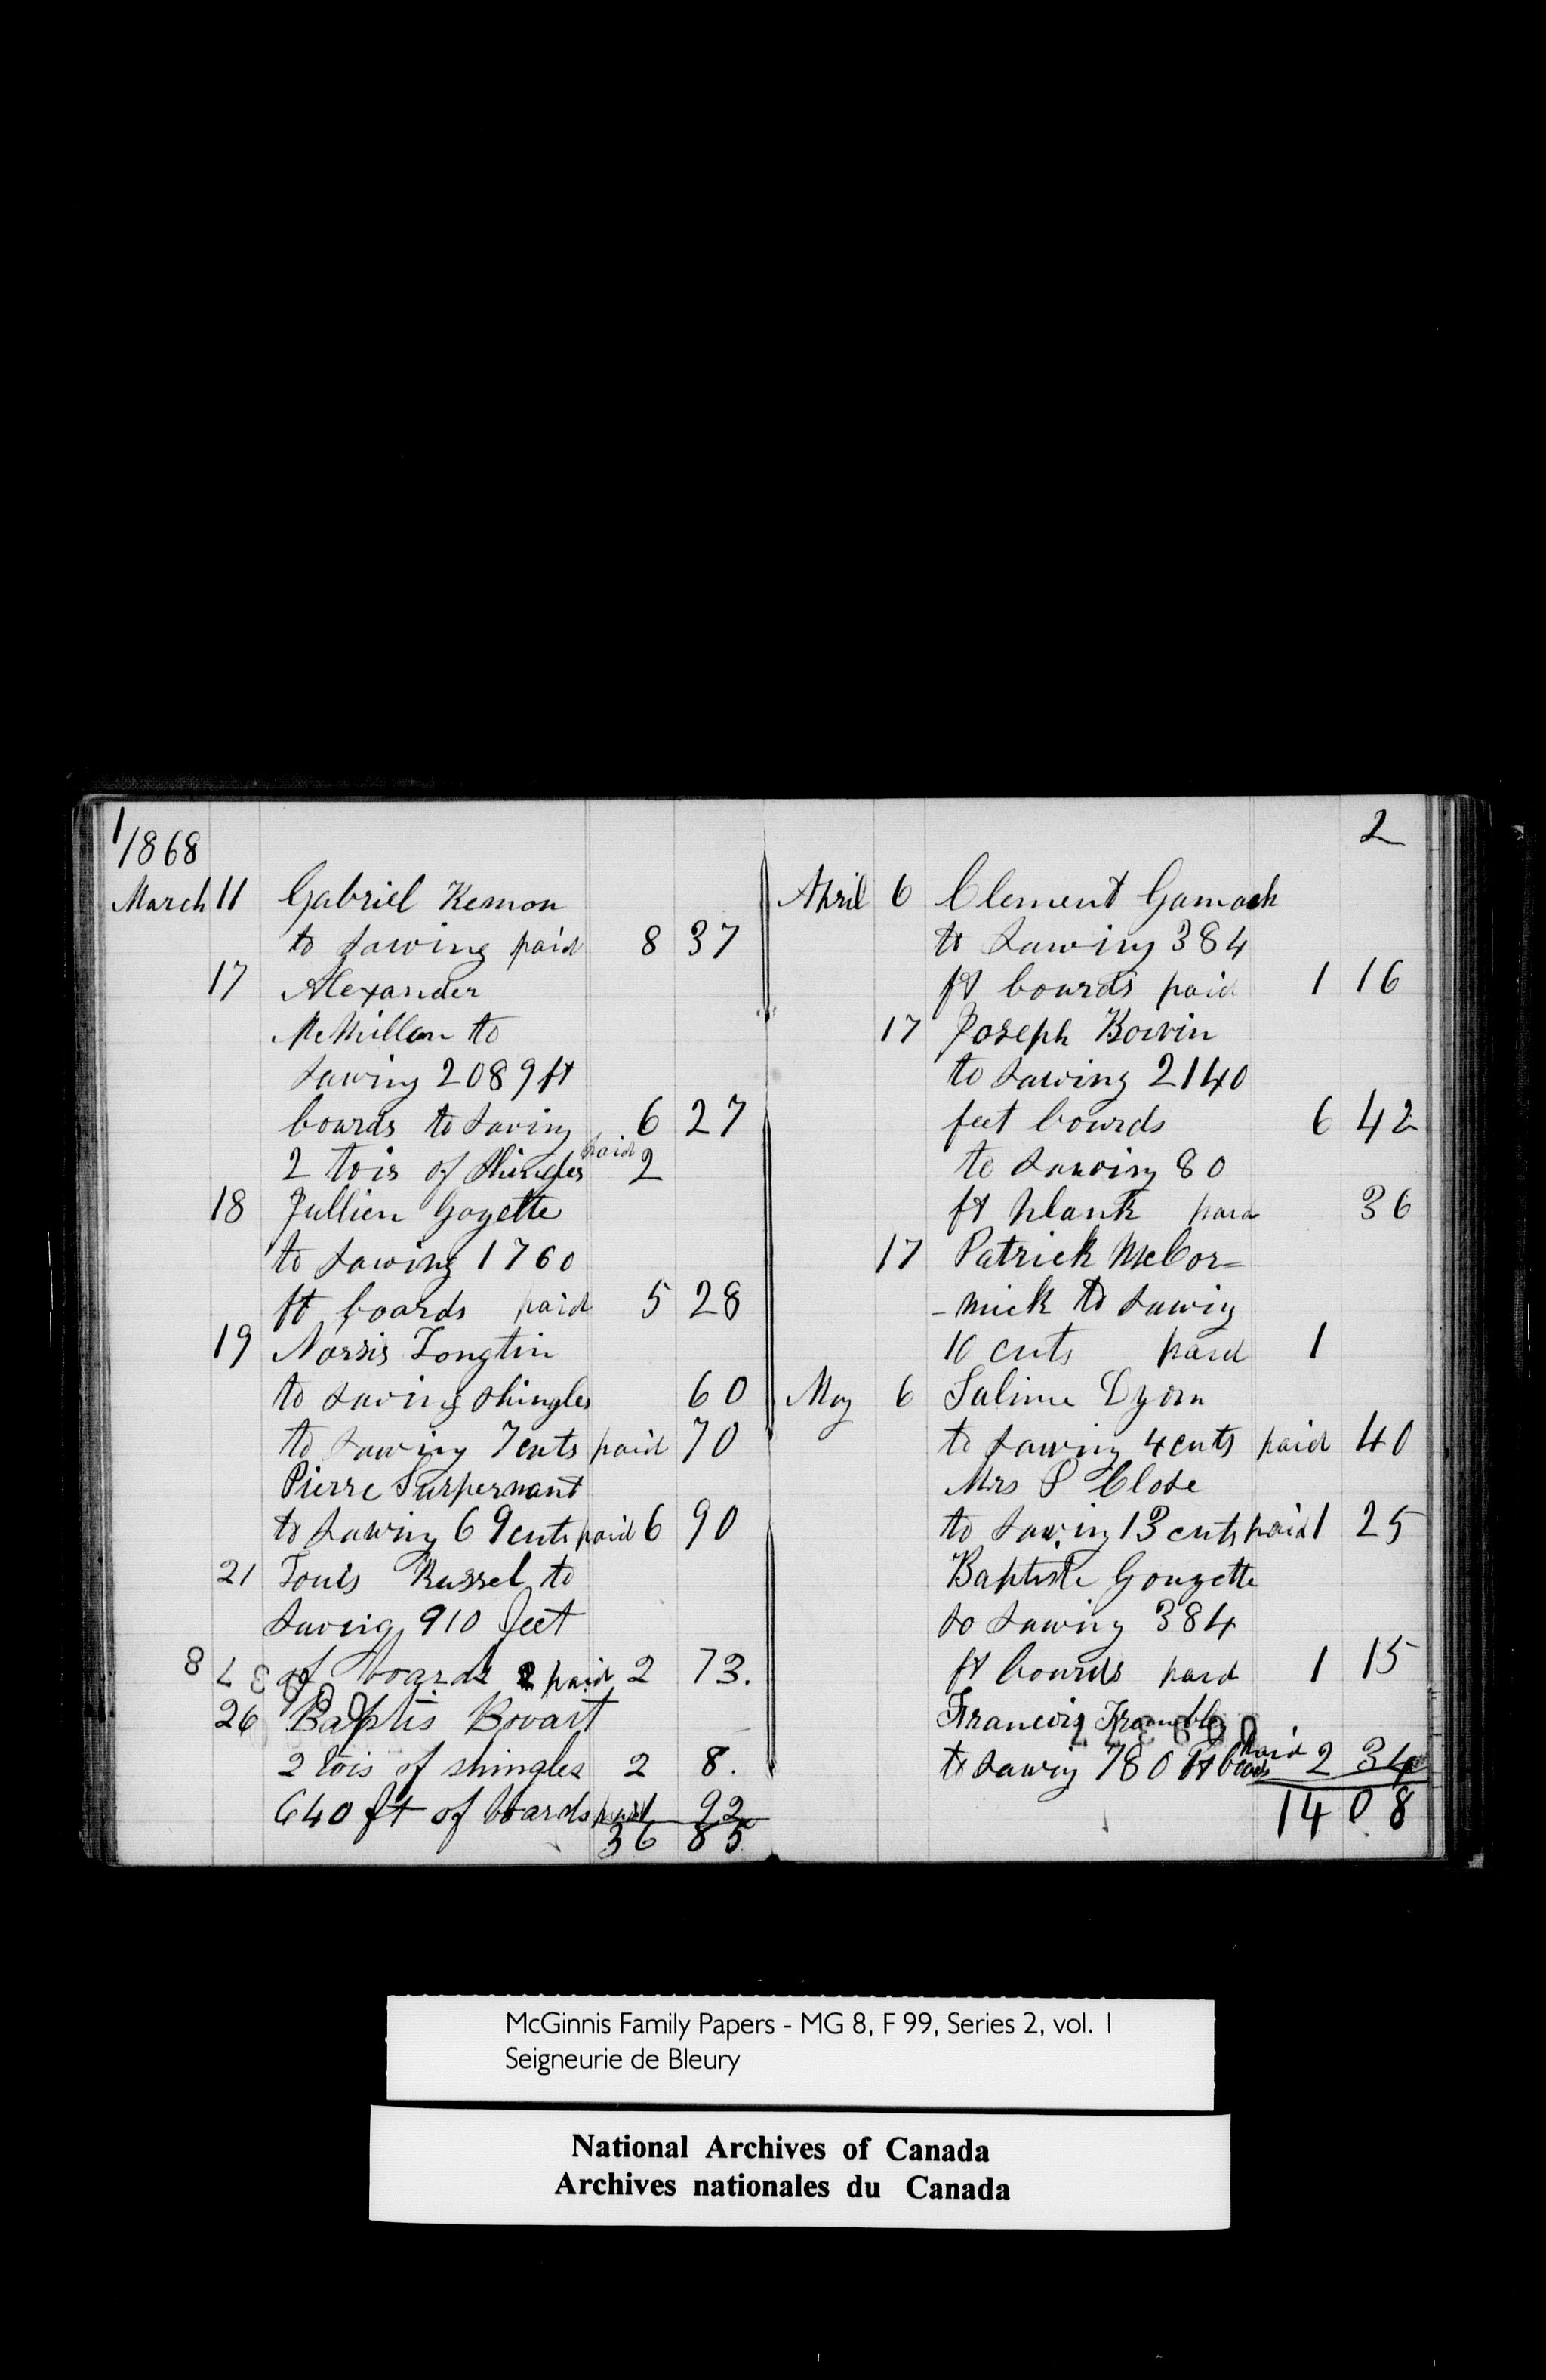 1
1868
March 11 Gabriel Kemon
to sawing paid 8 37
17 Alexander
McMillan to
sawing 2089 ft
boards to saving 6 27
2 tois of shingles paid 2
18 Jullien Goyette
to sawing 1760
ft boards paid 5 28
19 Narsis Longtin
to saving shingles 60
to sawing 7 cuts paid 70
Pierre Surpernant
to sawing 69 cuts paid 6 90
21 Louis Russel to
saving 910 feet
of boards paid 2 73.
26 Baptis Bovart
2 tois of shingles 2 8.
640 ft of boards paid 92
36 85
2
April 6 Clement Gamach
to sawing 384
ft bourds paid 1 16
17 Joseph Boivin
to sawing 2140
feet bourds 6 42
to sawing 80
ft plank paid 36
17 Patrick McCor=
-mick to sawig
10 cuts paid 1
May 6 Salime Dyon
to sawing 4 cuts paid 40
Mrs S Close
to sawing 13 cuts paid 1 25
Baptiste Gouyette
to sawing 384
ft bourds paid 1 15
Francois
to sawing 780 ft paid 2 34
14 08
McGinnis Family Papers - MG 8, F 99, Series 2, vol. 1
Seigneurie de Bleury
National Archives of Canada
Archives nationales du Canada